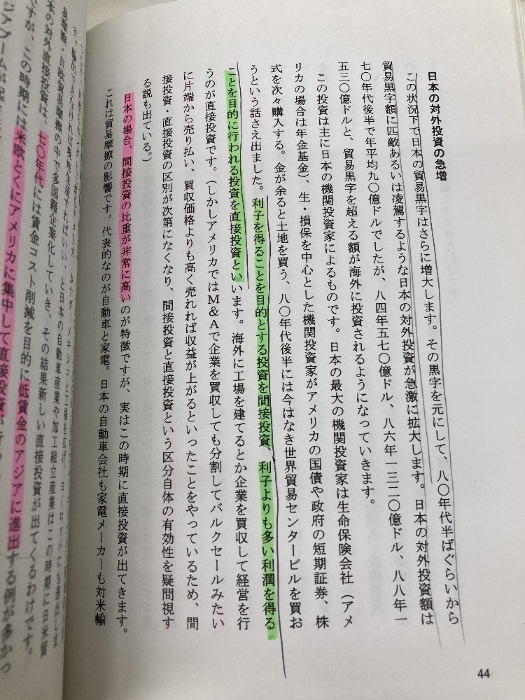 日本の対外投資の急増
この状況下で日本の貿易黒字はさらに増大します。その黒字を元にして、八〇年代半ばぐらいから
貿易黒字額に匹敵あるいは凌駕するような日本の対外投資が急激に拡大します。日本の対外投資額は
七〇年代後半で年平均九〇億ドルでしたが、八四年五七〇億ドル、八六年一三二〇億ドル、八八年一
五三〇億ドルと、貿易黒字を超える額が海外に投資されるようになっていきます。
この投資は主に日本の機関投資家によるものです。日本の最大の機関投資家は生命保険会社（アメ
リカの場合は年金基金）、生・損保を中心とした機関投資家がアメリカの国債や政府の短期証券、株
式を次々購入する。金が余ると土地を買う、八〇年代後半には今はなき世界貿易センタービルを買お
うという話さえ出ました。利子を得ることを目的とする投資を間接投資、利子よりも多い利潤を得る
ことを目的に行われる投資を直接投資といいます。海外に工場を建てるとか企業を買収して経営を行
うのが直接投資です。（しかしアメリカではM&Aで企業を買収しても分割してバルクセールみたい
に片端から売り払い、買収価格よりも高く売れれば収益が上がるといったことをやっているため、間
接投資・直接投資の区別が次第になくなり、間接投資と直接投資という区分自体の有効性を疑問視す
る説も出ている。）
日本の場合、間接投資の比重が非常に高いのが特徴ですが、実はこの時期に直接投資が出てきます。
これは貿易摩擦の影響です。代表的なのが自動車と家電。日本の自動車会社も家電メーカーも対米輸
と日本の自動車産業や加工組立産業はこの時期に日米貿
易摩擦・日欧貿易摩擦の中で多国籍企業化していき、その結果新しい直接投資が出てくるわけです。
本の対外直接投資は、七〇年代には賃金コスト削減を目的に低賃金のアジアに進出する例が多かっ
ですが、この時期には米欧とくにアメリカに集中して直接投資が行
44